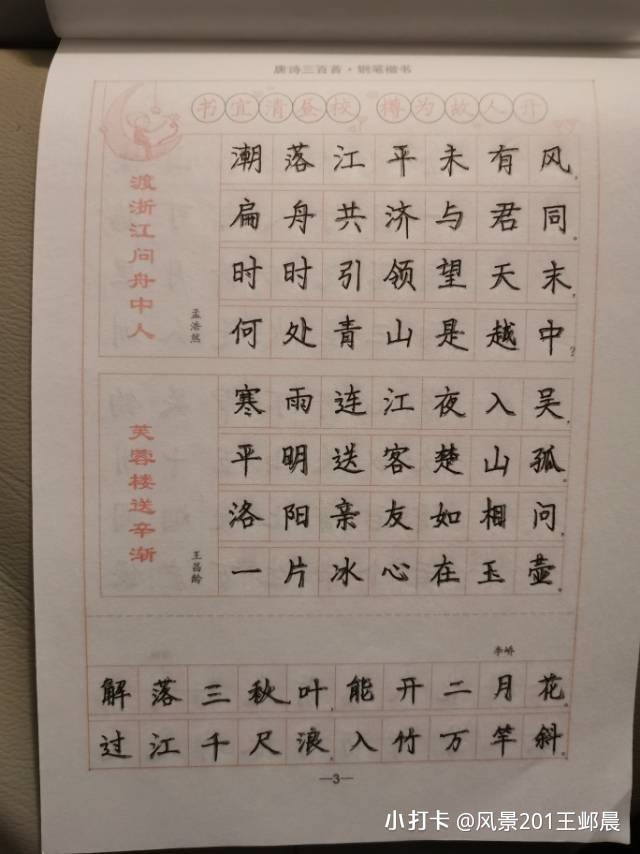 唐诗三百首·钢笔楷书
书宜清昼校 樽为故人开
渡浙江问舟中人
孟浩然
潮落江平未有风，
扁舟共济与君同。
时时引领望天末，
何处青山是越中？
芙蓉楼送辛渐
王昌龄
寒雨连江夜入吴，
平明送客楚山孤。
洛阳亲友如相问，
一片冰心在玉壶。
李峤
解落三秋叶，能开二月花。
过江千尺浪，入竹万竿斜。
—3—
小打卡 @风景201王邺晨